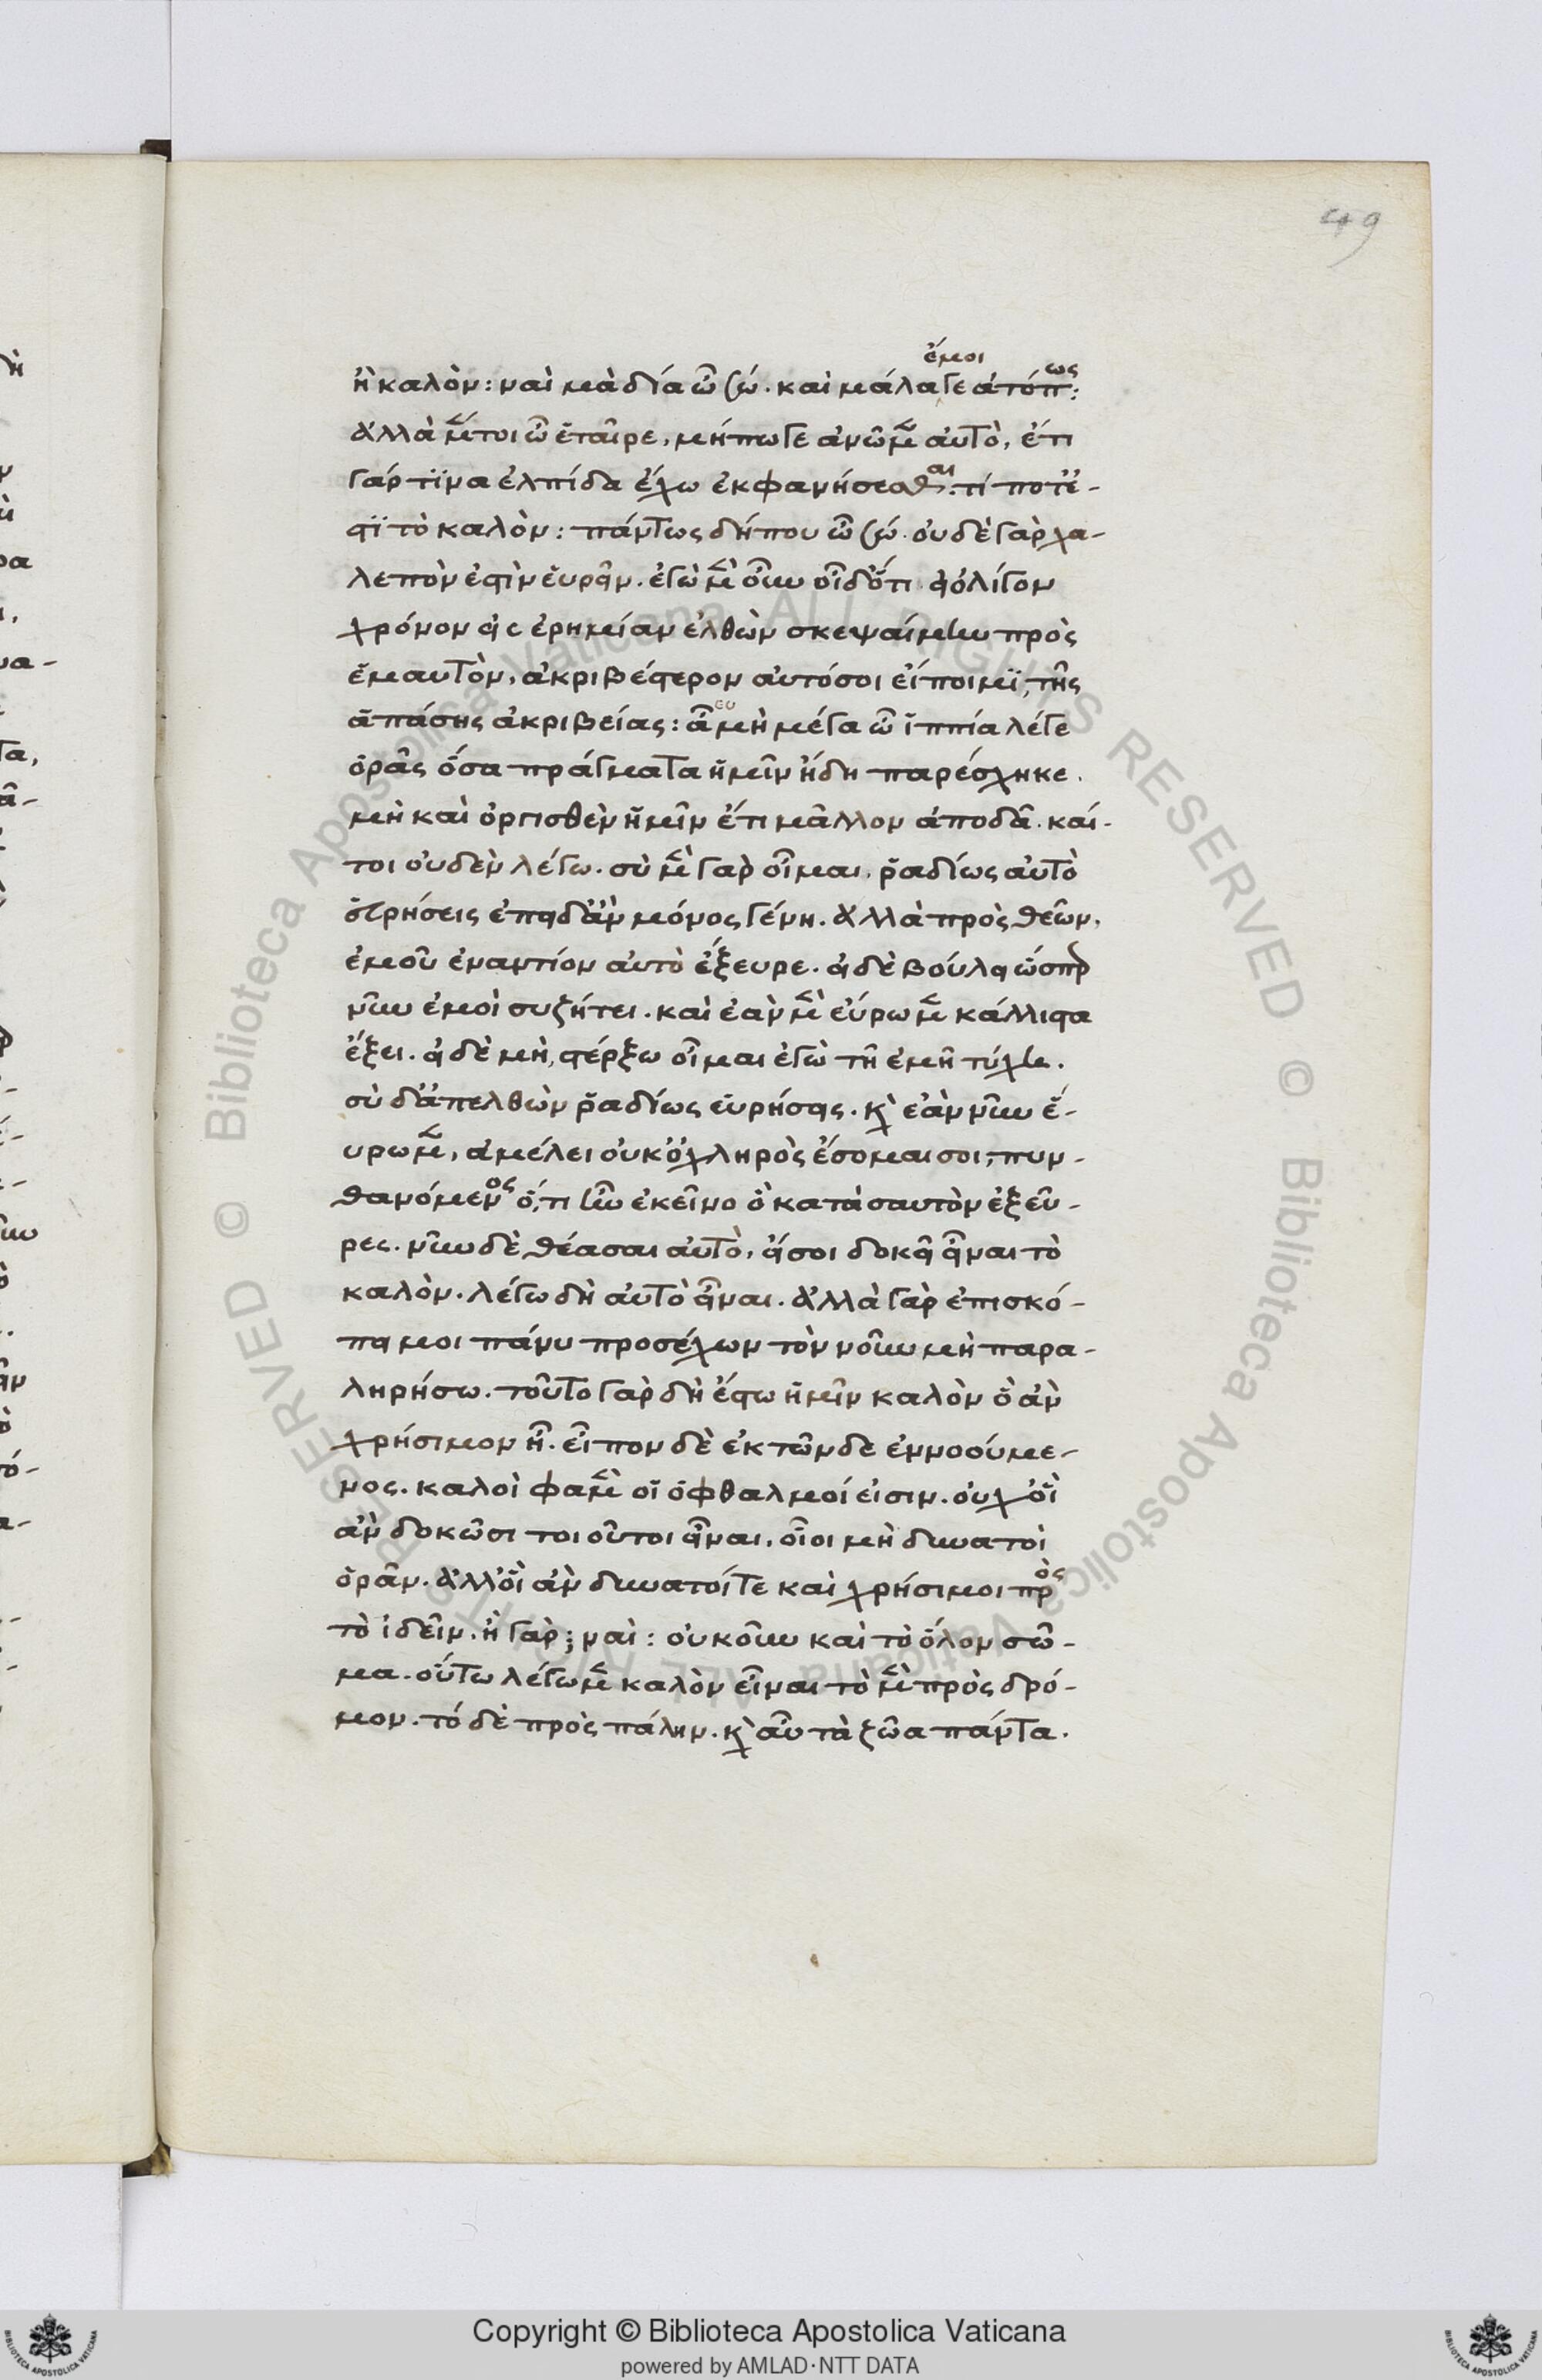 49
ἢ καλὸν: ναὶ μὰ δία ὦ σώ. καὶ μάλα γε ἔμοι ἀτόπως:
ἀλλὰ μέντοι ὦ ἑταῖρε, μήπω γε ἀνῶμεν αὐτὸ, ἔτι
γάρ τϊνα ἐλπίδα ἔχω ἐκφανήσεσθαι: τί ποτ' ἐ-
στϊ τὸ καλὸν: πάντως δήπου ὦ σώ. οὐδὲ γὰρ χα-
λεπὸν ἐστὶν εὑρεῖν. ἐγὼ μὲν οὖν οἶδ' ὅτι εἰ ὀλίγον
χρόνον εἰς ἐρημίαν ἐλθὼν σκεψαίμην πρὸς
ἐμαυτὸν, ἀκριβέστερον αὐτό σοι εἴποιμϊ, τῆς
ἁπάσης ἀκριβείας: ἆ ευ μὴ μέγα ὦ ἱππία λέγε
ὁρᾶς ὅσα πράγματα ἡμῖν ἤδη παρέσχηκε.
μὴ καὶ ὀργισθὲν ἡμῖν ἔτι μᾶλλον ἀποδρᾶ. καί-
τοι οὐδὲν λέγω. σὺ μὲν γὰρ οἶμαι, ῥαδίως αὐτὸ
εὑρήσεις ἐπειδ' ἂν μόνος γένῃ. ἀλλὰ πρὸς θεῶν,
ἐμοῦ ἐναντίον αὐτὸ ἔξευρε. εἰ δὲ βούλει ὥσπερ
νῦν ἐμοὶ συζήτει. καὶ ἐὰν μὲν εὕρωμεν κάλλιστα
ἕξει. εἰ δὲ μὴ, στέρξω οἶμαι ἐγὼ τῇ ἐμῇ τύχῃ.
σὺ δ' ἀπελθὼν ῥαδίως εὑρήσεις. κὶ ἐὰν νῦν εὕ-
υρωμεν, ἀμέλει οὐκ ὀχληρὸς ἔσομαι σοι, πυν-
θανόμενος ὅ,τι ἦν ἐκεῖνο ὃ κατὰ σαυτὸν ἐξεῦ-
ρες. νῦν δὲ θέασαι αὐτὸ, εἴ σοι δοκεῖ εἶναι τὸ
καλὸν. λέγω δὴ αὐτὸ εἶναι. ἀλλὰ γὰρ ἐπισκό-
πει μοι πάνυ προσέχων τὸν νοῦν μὴ παρα-
ληρήσω. τοῦτο γὰρ δὴ ἔστω ἡμῖν καλὸν ὃ ἂν
χρήσιμον ᾖ. εἶπον δὲ ἐκ τῶνδε ἐννοούμε-
νος. καλοὶ φαμὲν οἱ ὀφθαλμοί εἰσιν. οὐχ οἳ
ἂν δοκῶσι τοιοῦτοι εἶναι, οἷοι μὴ δυνατοὶ
ὁρᾶν. ἀλλ' οἳ ἂν δυνατοί τε καὶ χρήσιμοι πρὸς
τὸ ἰδεῖν. ἢ γὰρ; ναὶ: οὐκοῦν καὶ τὸ ὅλον σῶ-
μα. οὕτω λέγωμεν καλὸν εἶναι τὸ μὲν πρὸς δρό-
μον. τό δὲ πρὸς πάλην. κὶ αὖ τὰ ζῶα πάντα.
Copyright © Biblioteca Apostolica Vaticana
powered by AMLAD·NTT DATA